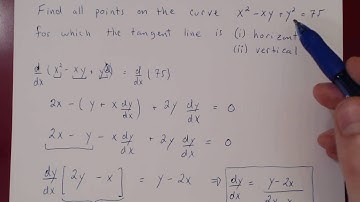 Find all points on the curve x² - xy + y² = 75
for which the tangent line is (i) horizont
(ii) vertical
d/dx (x² - xy + y²) = d/dx (75)
2x - (y + x dy/dx) + 2y dy/dx = 0
2x - y - x dy/dx + 2y dy/dx = 0
dy/dx [2y - x] = y - 2x ⇒ dy/dx = (y - 2x)/(2y - x)